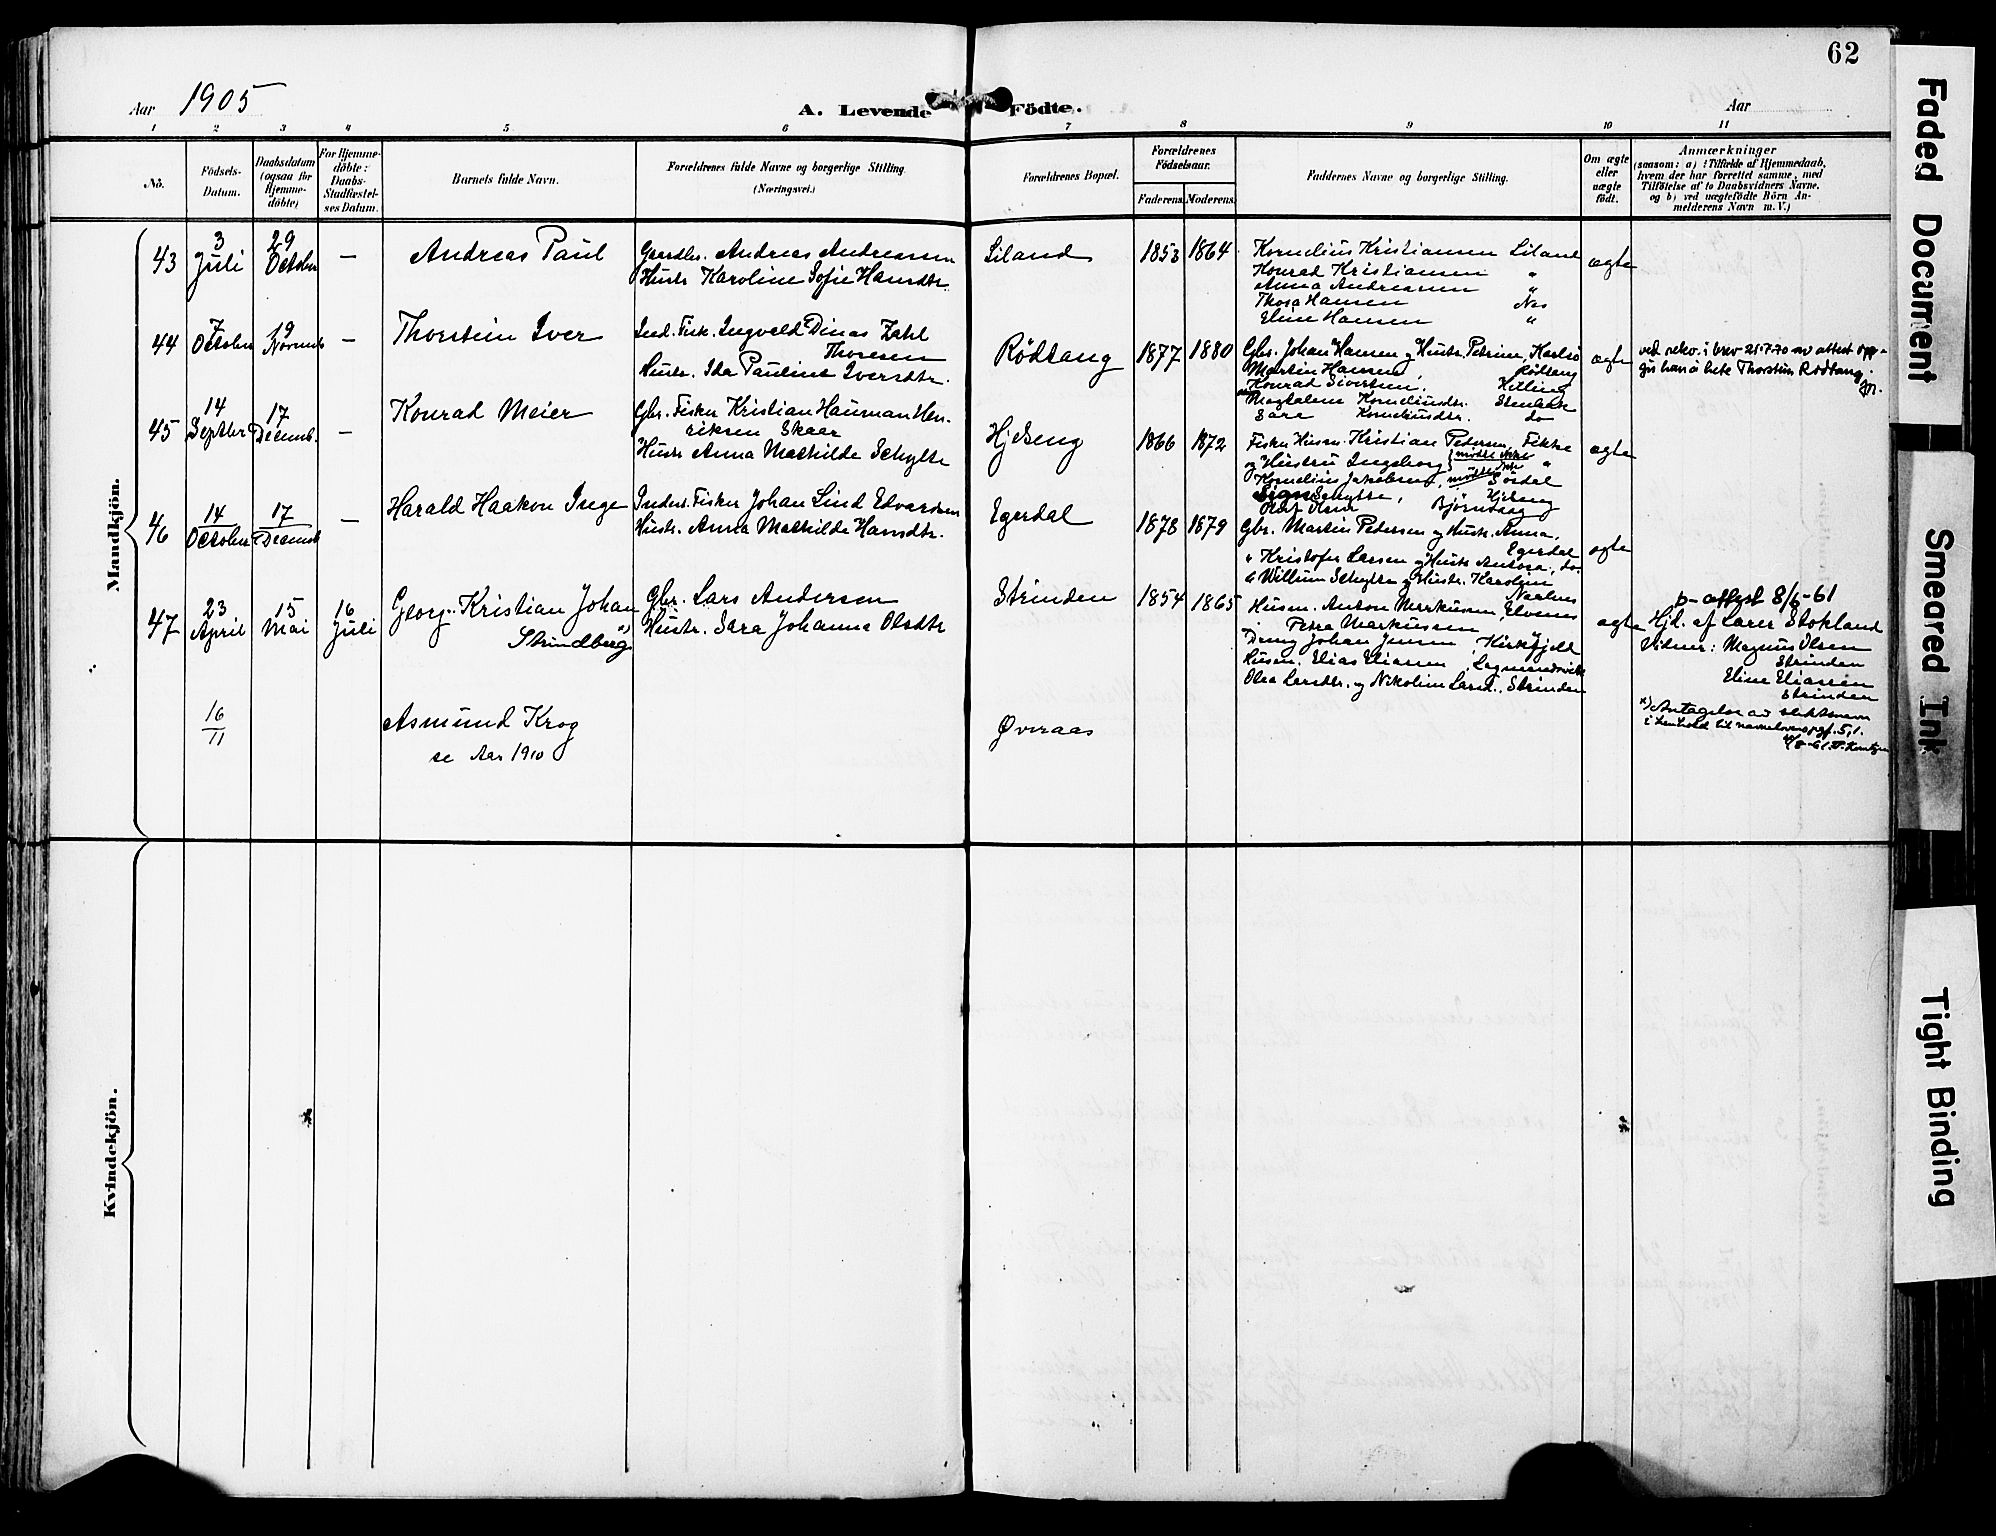 62
Aar 1905
A. Levende Födte.
Aar
1 2 3 4 5 6 7 8 9 10 11
No.
Födsels-
Datum.
Daabsdatum
(ogsaa for
Hjemme-
döbte)
For Hjemme-
döbte:
Daabs-
Stadfæstel-
ses Datum.
Barnets fulde Navn.
Forældrenes fulde Navne og borgerlige Stilling.
(Næringsvei.)
Forældrenes Bopæl.
Forældrenes
Födselsaar.
Faderens.
Moderens.
Faddernes Navne og borgerlige Stilling.
Om ægte
eller
uægte
födt.
Anmærkninger
(saasom: a) i Tilfælde af Hjemmedaab,
hvem der har forrettet samme, med
Tilföielse af to Daabsvidners Navne,
og b) ved uægtefödte Börn An-
melderens Navn m. V.)
Mandkjön.
43
3
Juli
29
October
—
Andreas Paul
Gaardbr. Andreas Andreasen
Hustr. Karoline Sofie Hansdtr.
Liland
1853
1864
Kornelius Kristiansen Liland
Konrad Kristiansen "
Anna Andreasen "
Thora Hansen Nes
Eline Hansen "
ægte
44
7
October
19
Novemb
—
Thorstein Iver
Ind. Fisk. Ingvald Dinas Zahl
Thoresen
Hustr. Ida Pauline Iversdtr.
Rødtang
1877
1880
Gbr. Johan Hansen og Hustr. Petrine, Karlsö
Martin Hansen, Rödtang
Konrad Sivertsen,
Magdalene Korneliusdtr.
Sara Korneliusdtr. do
ægte
ved rekv. i brev 21.7.70 av attest opp-
gir han å hete Thorstein Rødtang.
45
14
Septbr
17
Decemb.
—
Konrad Meier
Gbr. Fisker Kristian Hauman Hen-
riksen Skaar
Hustr. Anna Mathilde Schytte
Hjelseng
1866
1872
Fisker Husm. Kristian Pedersen,
og Hustru Ingeborg } mødte ikke "
Kornelius Jakobsen, mødte ikke
Signe Schytte, Hjelseng
Olaf Olsen
ægte
46
14
October
17
Decemb
—
Harald Haakon Inge
Inders. Fisker Johan Lind Edvardsen
Hustr. Anna Mathilde Hansdtr.
Egerdal
1878
1879
Gbr. Martin Pedersen og Hustr. Anna,
Egerdal
" Kristofer Larsen og Hustr. Antona, do.
" Willum Schytte og Hustr. Karoline
ægte
47
23
April
15
Mai
16
Juli
Georg Kristian Johan
Strindberg x)
Gbr. Lars Andersen
Hustr. Sara Johanna Olsdtr
Strinden
1854
1865
Husm. Anton Markussen, Elvenes
" Petra Markussen
Dreng Johan Jensen, Kirkfjell
Husm. Elias Eliassen,
Olea Larsdtr. og Nikoline Larsd., Strinden
ægte
p-attest 8/6-61
Hjd. af Lærer Stokland
Vidner: Magnus Olsen
Strinden
Eline Eliassen
Strinden
x) Antagelse av slektsnavn
i henhold til navnelovens pgf. 5, 1.
16
11
Asmund Krog
se Aar 1910
Øveraas
Kvindekjön.
Faded Document
Smeared Ink
Tight Binding